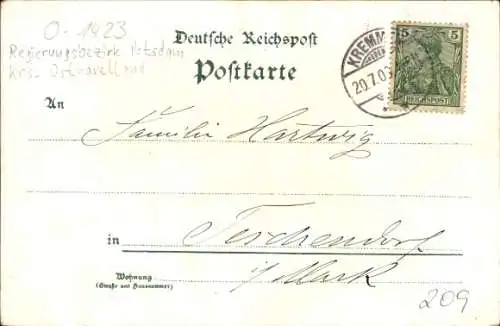 O-1423
Regierungsbezirk Potsdam
Krs. Osthavelland
Deutsche Reichspost
Postkarte
KREMM
20.7.0
5 5
REICHSPOST
An
Familie Hartwig
in Teschendorf
i/Mark
Wohnung
(Straße und Hausnummer)
209